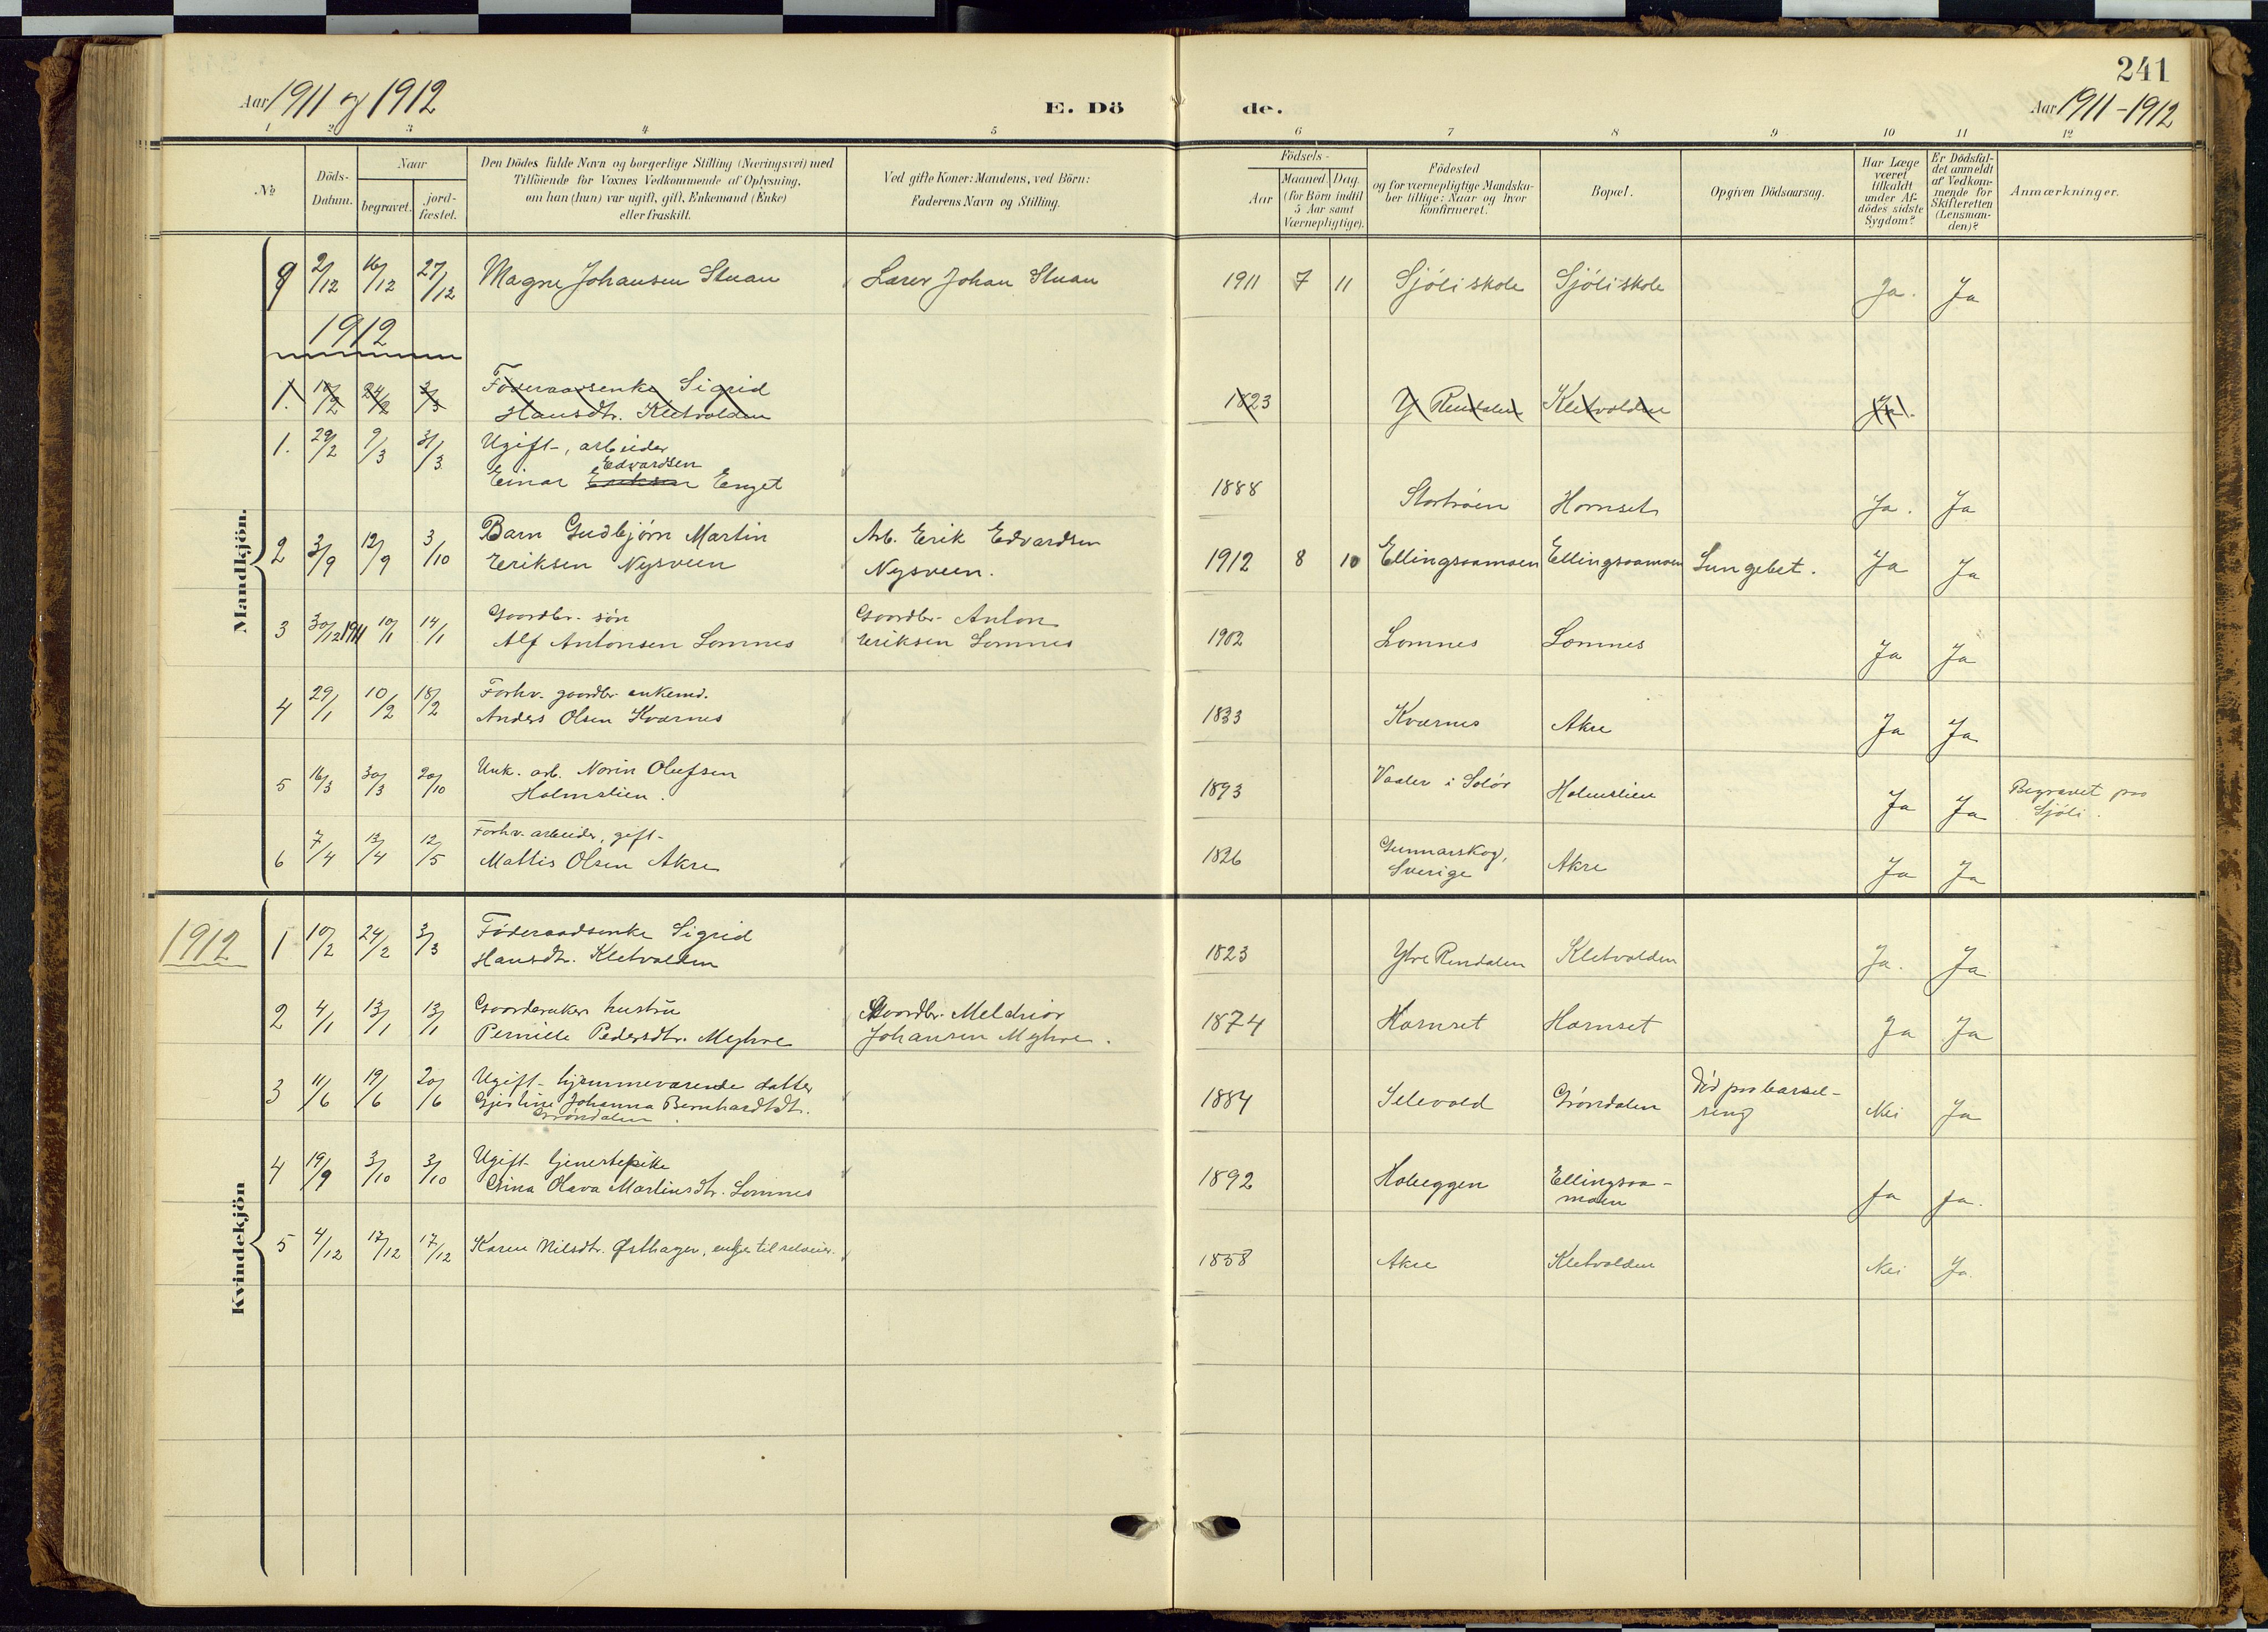 241
Aar 1911 og 1912
E. Dö
de.
Aar 1911-1912
1 2 3 4 5 6 7 8 9 10 11 12
No
Döds-
Datum.
Naar
begravet.
jord-
fæstet.
Den Dödes fulde Navn og borgerlige Stilling (Næringsvei) med
Tilföiende for Voxnes Vedkommende af Oplysning,
om han (hun) var ugift, gift, Enkemand (Enke)
eller fraskilt.
Ved gifte Koner: Mandens, ved Börn:
Faderens Navn og Stilling.
Födsels-
Aar
Maaned. Dag.
(for Börn indtil
5 Aar samt
Værnepligtige).
Födested
og for værnepligtige Mandska-
ber tillige: Naar og hvor
konfirmeret.
Bopæl.
Opgiven Dödsaarsag.
Har Læge
været
tilkaldt
under Af-
dödes sidste
Sygdom?
Er Dödsfal-
det anmeldt
af Vedkom-
mende for
Skifteretten
(Lensman-
den)?
Anmærkninger.
Mandkjön.
9 2/12 16/12 27/12 Magne Johansen Stuan Lærer Johan Stuan 1911 7 11 Sjöli skole Sjöli skole - Ja. Ja
1912
1. 10/2 24/2 3/3 Föderaadsenke Sigrid
Hansdtr. Kletvolden 1823 Y Rendalen Kletvolden Ja.
1. 29/2 9/3 31/3 Ugift, arbeider
Edvardsen
Einar Eriksen Enget 1888 Hornset Ja. Ja
2 3/9 12/9 3/10 Barn Gudbjörn Martin Arb. Erik Edvardsen
Eriksen Nysveen Nysveen. 1912 8 10 Ellingsaamoen Ellingsaamoen Lungebet. Ja Ja
3 30/12 1911 10/1 14/1 Gaardbr. sön Gaardbr. Anton
Alf Antonsen Lomnes Eriksen Lomnes 1902 Lomnes Lomnes Ja Ja
4 29/1 10/2 18/2 Forhv. gaardbr. enkemd.
Anders Olsen Kværnes 1833 Kværnes Akre Ja Ja
5 16/3 30/3 20/10 Unk. arb. Norin Olufsen
Holmslien. 1893 Vaaler i Solör Holmslien Ja Ja Begravet paa
Sjöli.
6 7/4 13/4 12/5 Forhv. arbeider, gift-
Mattis Olsen Akre 1826 Gunnarskog,
Sverige Akre Ja Ja
Kvindekjön
1912 1 10/2 24/2 3/3 Föderaadsenke Sigrid
Hansdtr. Kletvolden 1823 Ytre Rendalen Kletvolden Ja. Ja
2 4/1 13/1 13/1 Gaardbrukers hustru Gaardbr. Melchior
Pernille Pedersdtr. Myhre Johansen Myhre. 1874 Hornset Hornset Ja Ja
3 11/6 19/6 20/6 Ugift hjemmeværende datter
Johanna Bernhardtdtr.
Gröndalen. 1884 Gröndalen Död paa barsel-
seng Nei Ja
4 19/9 3/10 3/10 Ugift tjenestepike
Olava Martinsdtr. Lomnes 1892 Ellingsaa-
moen Ja Ja.
5 4/12 17/12 17/12 Karen Nilsdtr. Østhagen, enke til selveier. 1858 Akre Kletvolden Nei Ja.